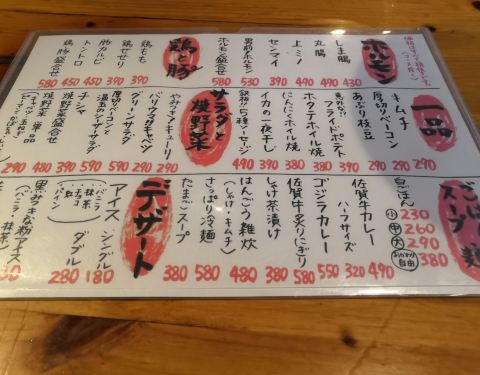 ホルモン
しま腸 430
丸腸 490
上ミノ 490
センマイ
男前ホルモン
ホルモン盛合せ
鶏と豚
鶏もも 390
鶏せせり 390
豚カルビ 450
トントロ 450
鶏豚盛合せ 580
一品
キムチ 290
厚切りベーコン 290
あぶり枝豆 290
フライドポテト
ホタテホイル焼 380
にんにくホイル焼 380
イカの一夜干し 390
鉄板!!5種ソーセージ 490
サラダと焼野菜
やみつきキューリ 290
バリウマキャベツ 290
グリーンサラダ
厚切りベーコンと温玉のシーザーサラダ 590
チシマ 390
焼野菜盛合せ 480
焼野菜 単品 290
ごはん スープ 麺
白ごはん
小 230
中 260
大 290
おかわり自由 380
佐賀牛カレー 490
ハーフサイズ 320
ゴジラカレー 550
佐賀牛炙りにぎり 580
しゃけ茶漬け 380
はんごう雑炊 480
(しゃけ・キムチ)
さっぱり冷麺 580
たまごスープ 380
デザート
アイス シングル 180
ダブル 280
黒みつきな粉アイス